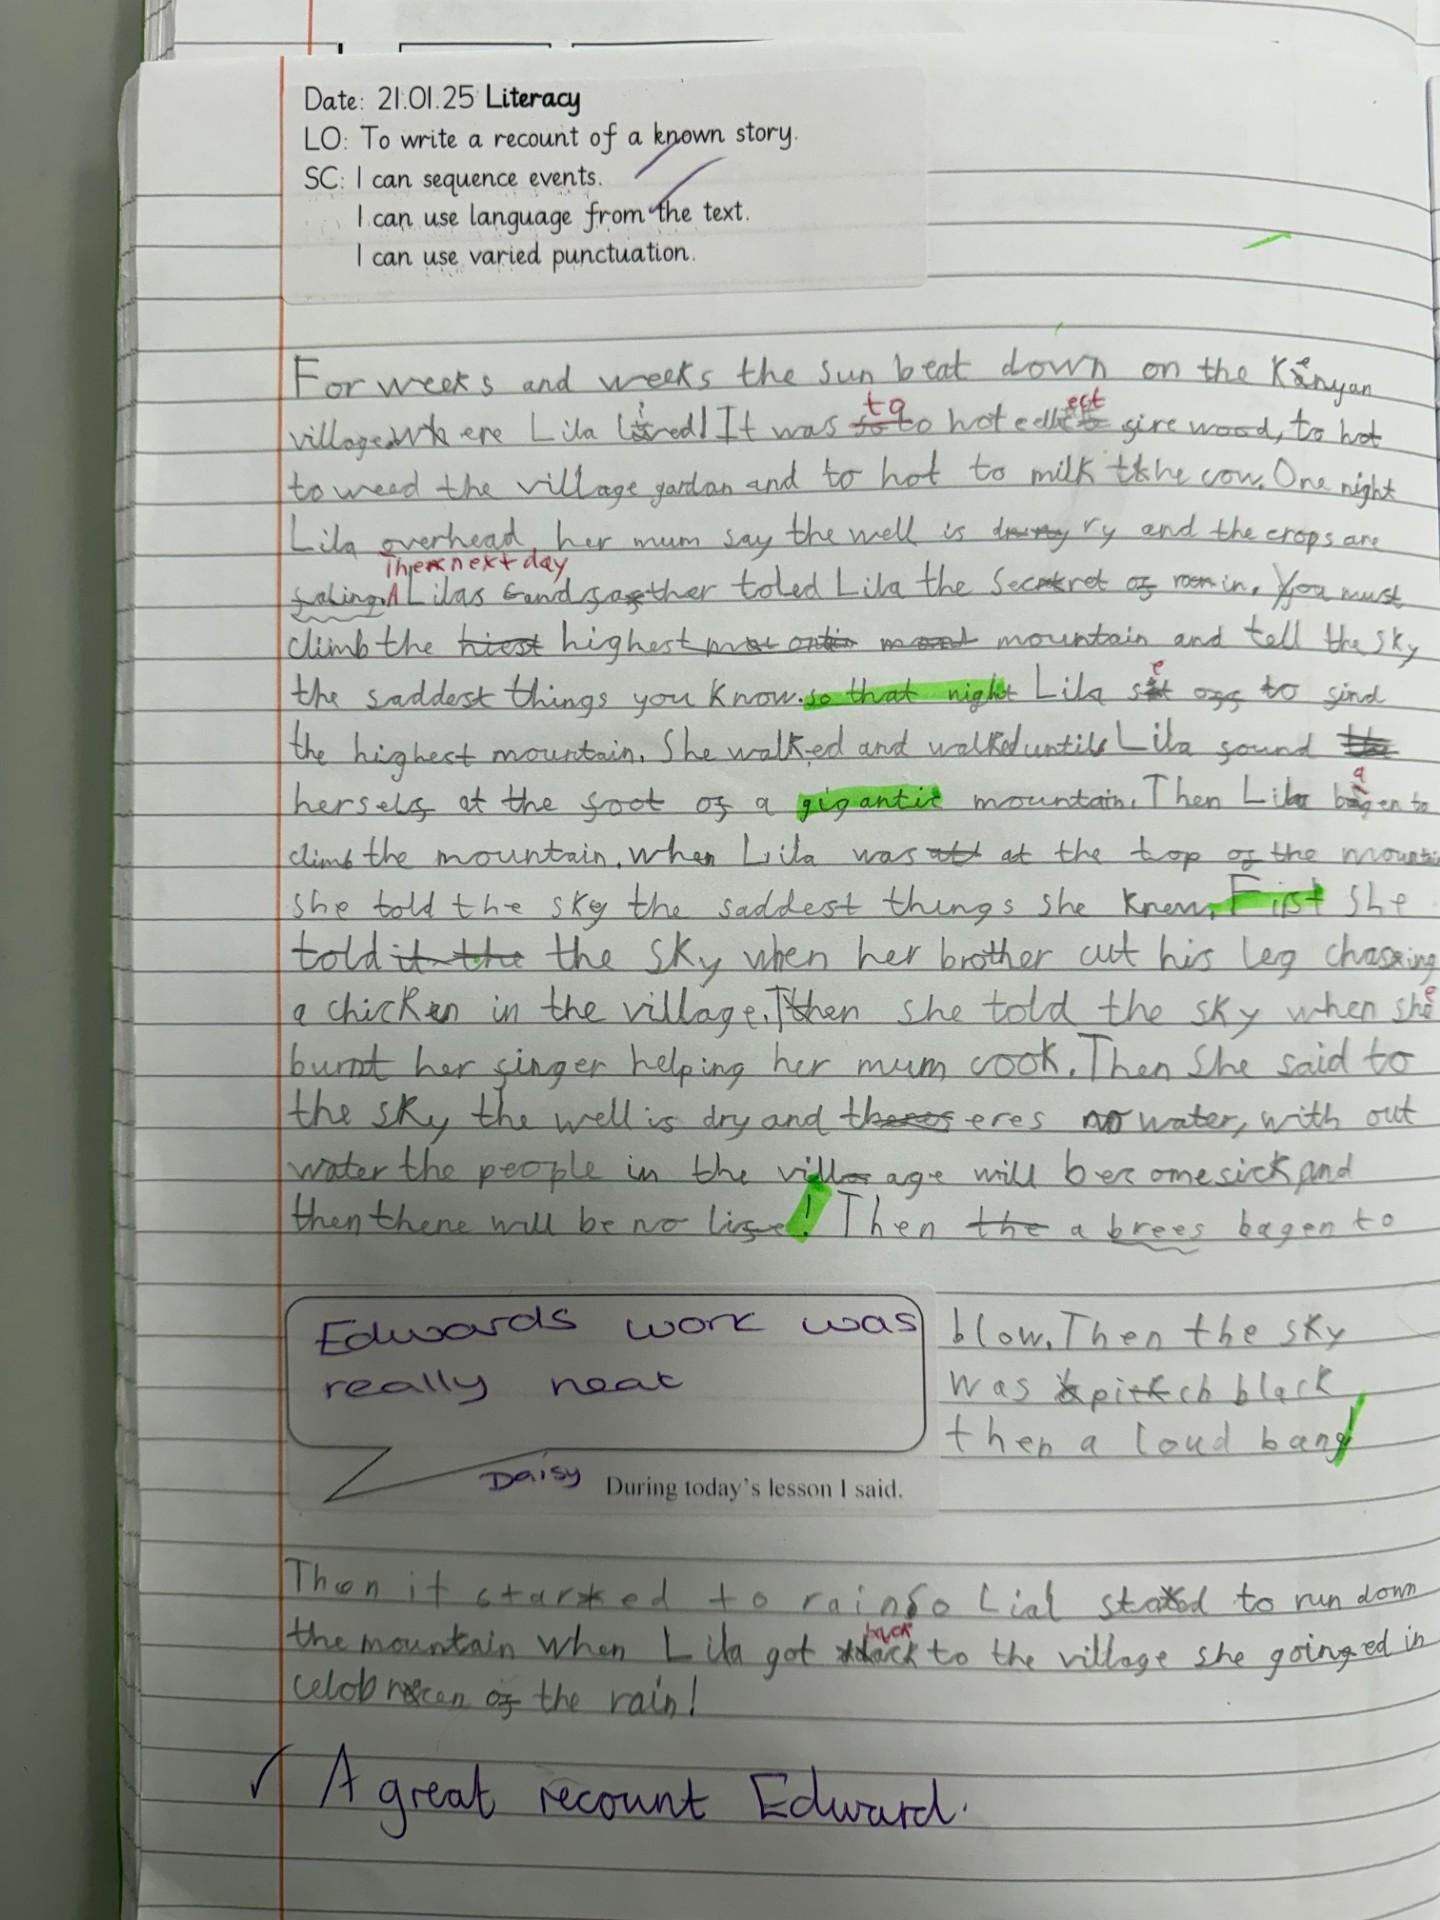 Date: 21.01.25 Literacy
LO: To write a recount of a known story.
SC: I can sequence events.
I can use language from the text.
I can use varied punctuation.
For weeks and weeks the sun beat down on the Kenyan
village where Lila lived! It was to hot collect fire wood, to hot
to weed the village gardan and to hot to milk the cow. One night
Lila overhead her mum say the well is dry and the crops are
The next day
faling. Lilas Grandfather toled Lila the Secret of rain. You must
climb the highest mountain and tell the sky
the saddest things you know. so that night Lila set off to find
the highest mountain. She walked and walked until Lila found
herself at the foot of a gigantic mountain. Then Lila bagen to
climb the mountain. when Lila was at the top of the mountain
she told the sky the saddest things she knew. First she
told the sky when her brother cut his leg chasing
a chicken in the village. Then she told the sky when she
burnt her finger helping her mum cook. Then She said to
the sky the well is dry and theres no water, with out
water the people in the village will become sick and
then there will be no life! Then a brees bagen to
Edwards work was
really neat
Daisy During today's lesson I said.
blow. Then the sky
was pitch black
then a loud bang!
Then it started to rain so Lial stated to run down
the mountain when Lila got back to the village she goined in
of the rain!
A great recount Edward.